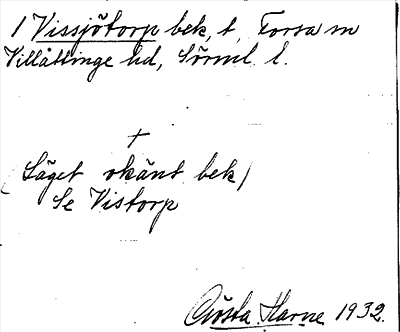 / Vissjötorp bek, t, Forsa m
Villåttinge hd, Sörml. l.
+
(Läget okänt bek)
Se Vistorp
Gösta Harne 1932.